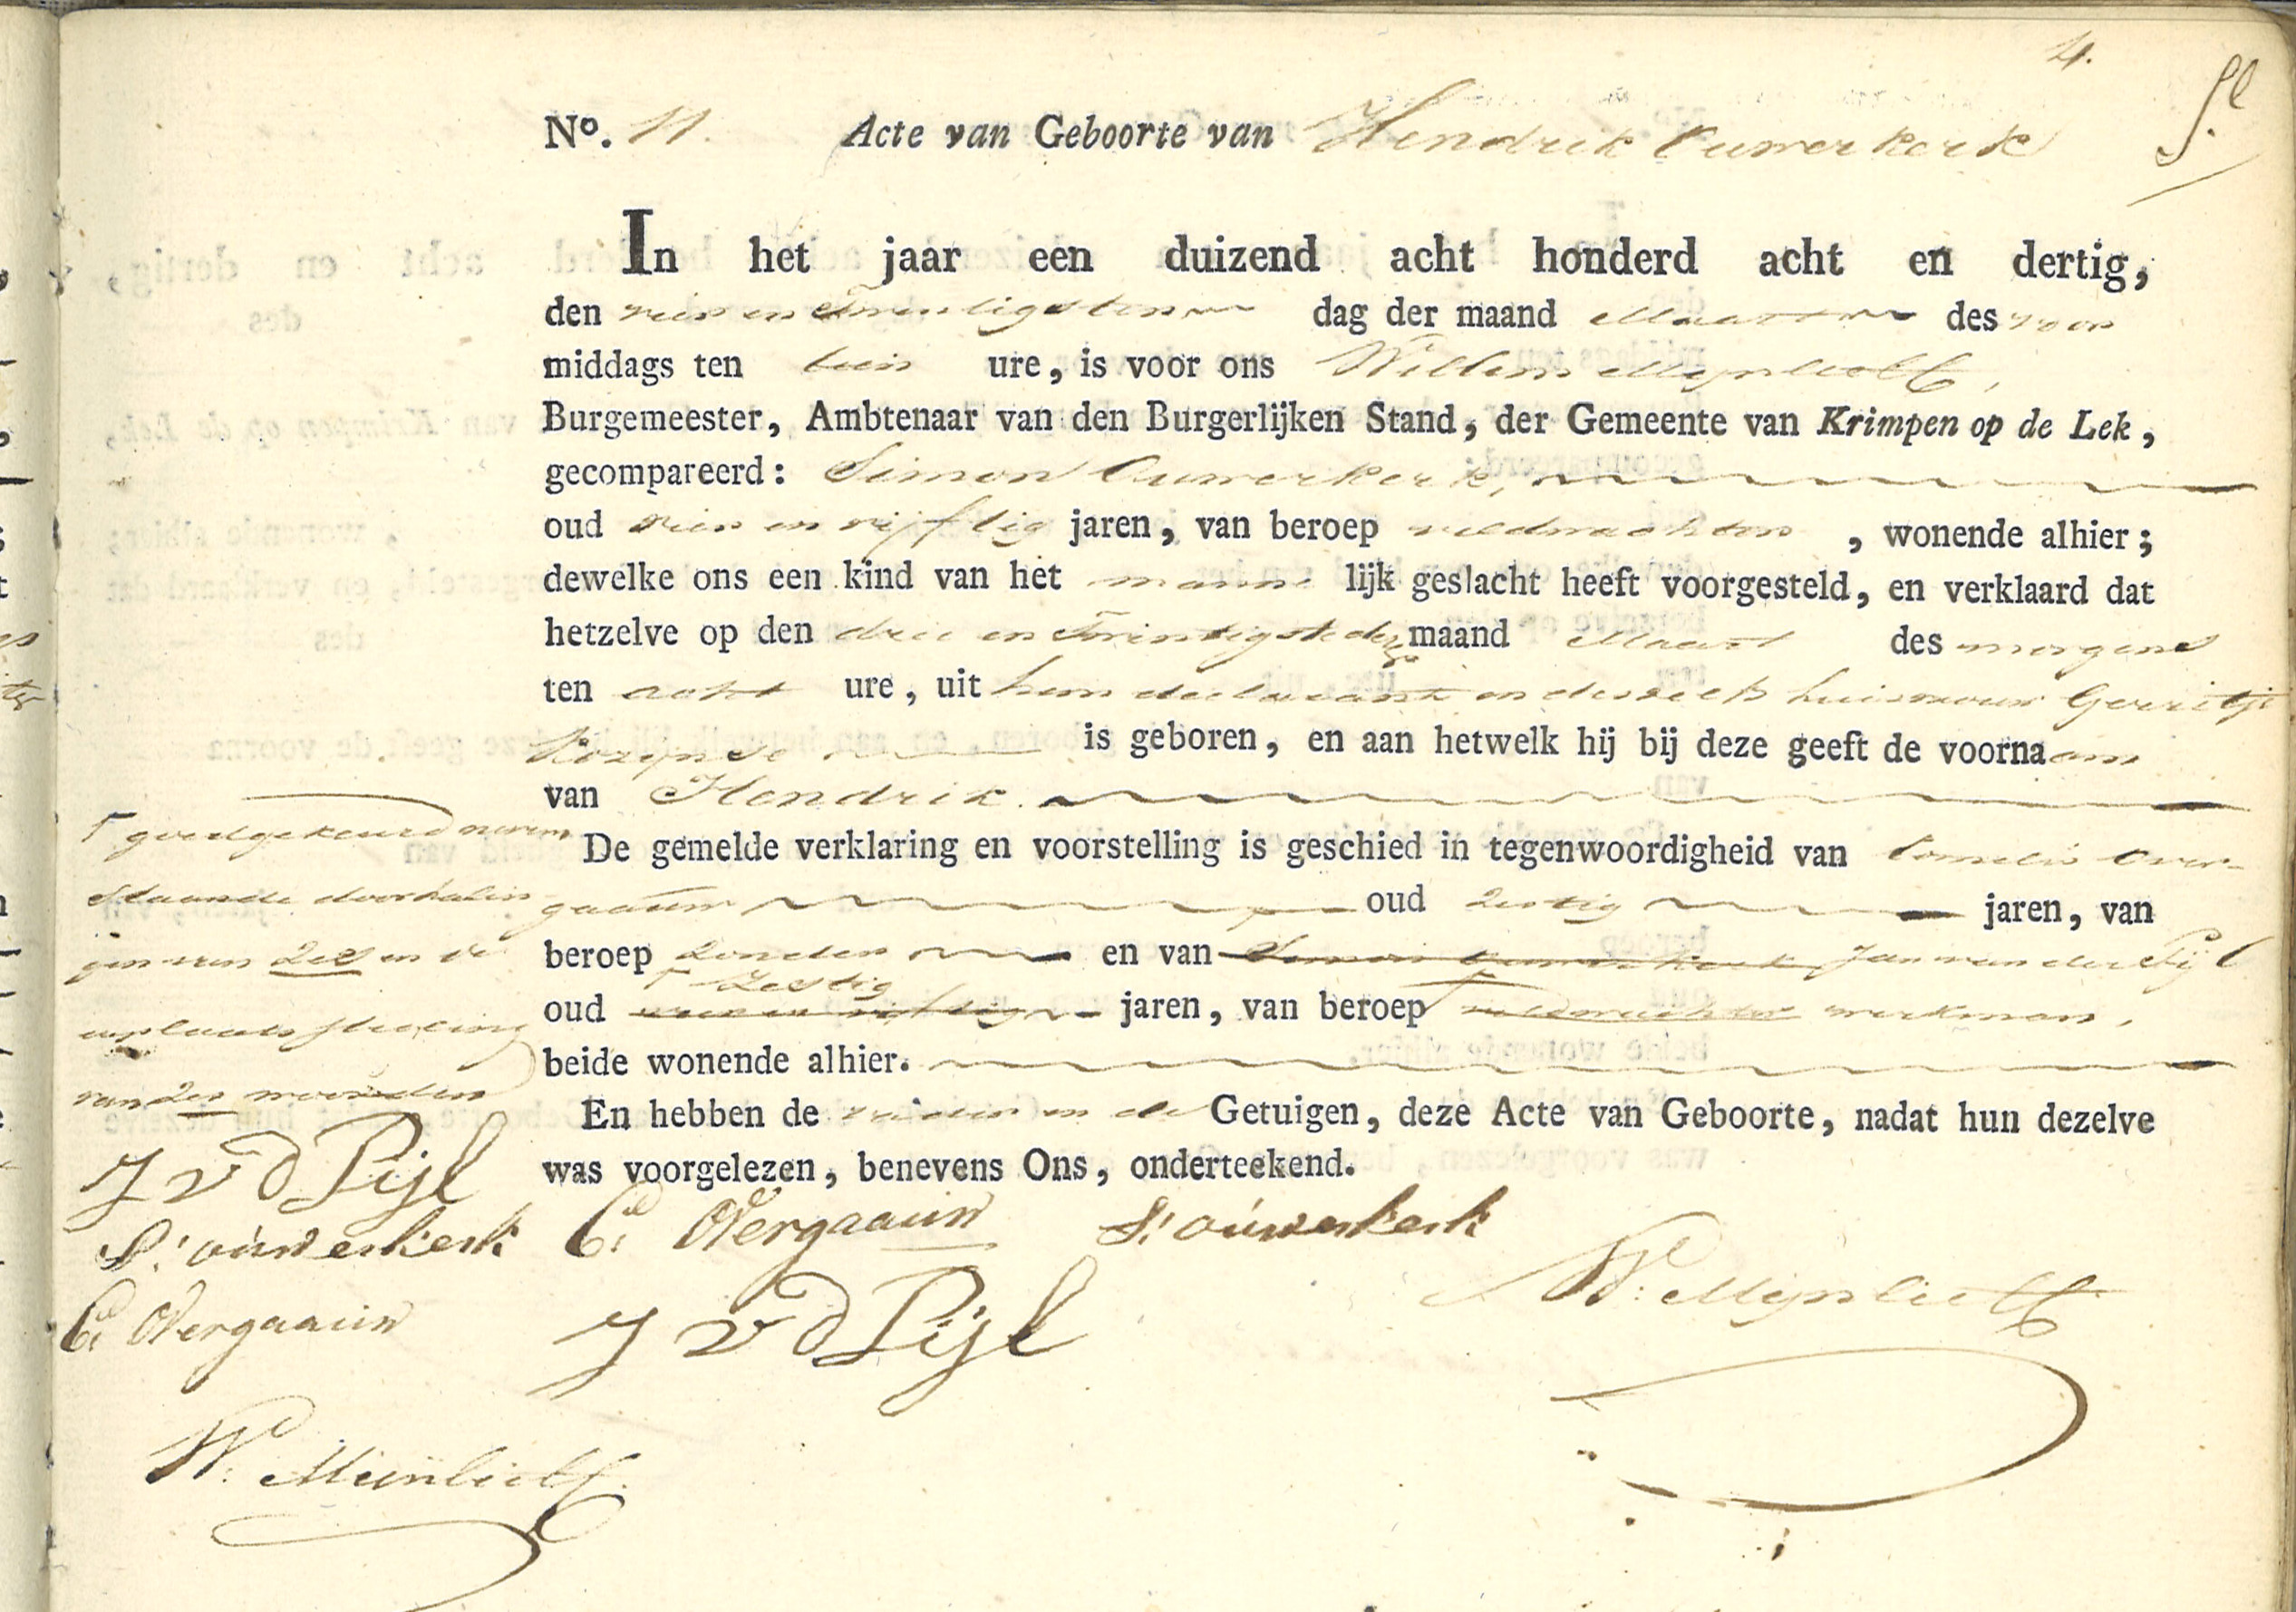 4.
No. 11. Acte van Geboorte van Hendrik Ouwerkerk
In het jaar een duizend acht honderd acht en dertig,
den vier en Twintigsten dag der maand Maart des voor
middags ten tien ure, is voor ons Willem Mijnlieff,
Burgemeester, Ambtenaar van den Burgerlijken Stand, der Gemeente van Krimpen op de Lek,
gecompareerd: Simon Ouwerkerk,
oud vier en vijftig jaren, van beroep veldwachter, wonende alhier;
dewelke ons een kind van het manne lijk geslacht heeft voorgesteld, en verklaard dat
hetzelve op den drie en Twintigste dezer maand Maart des morgens
ten acht ure, uit hem declarant en deszelfs huisvrouw Gerritje
Kozijnse is geboren, en aan hetwelk hij bij deze geeft de voornaam
van Hendrik.
De gemelde verklaring en voorstelling is geschied in tegenwoordigheid van Cornelis Over-
gaauw oud Zestig jaren, van
beroep zonder en van Simon Ouwerkerk Jan van der Pijl
Zestig
oud vier en vijftig jaren, van beroep veldwachter werkman,
beide wonende alhier.
En hebben de vader en de Getuigen, deze Acte van Geboorte, nadat hun dezelve
was voorgelezen, benevens Ons, onderteekend.
goedgekeurd nevens
staande doorhalin
gen van zes en de
van zes woorden
J v d Pijl
S: ouwerkerk
C. Overgaauw
W: Mijnlieff
C. Overgaauw S: ouwerkerk
J v d Pijl
W: Mijnlieff